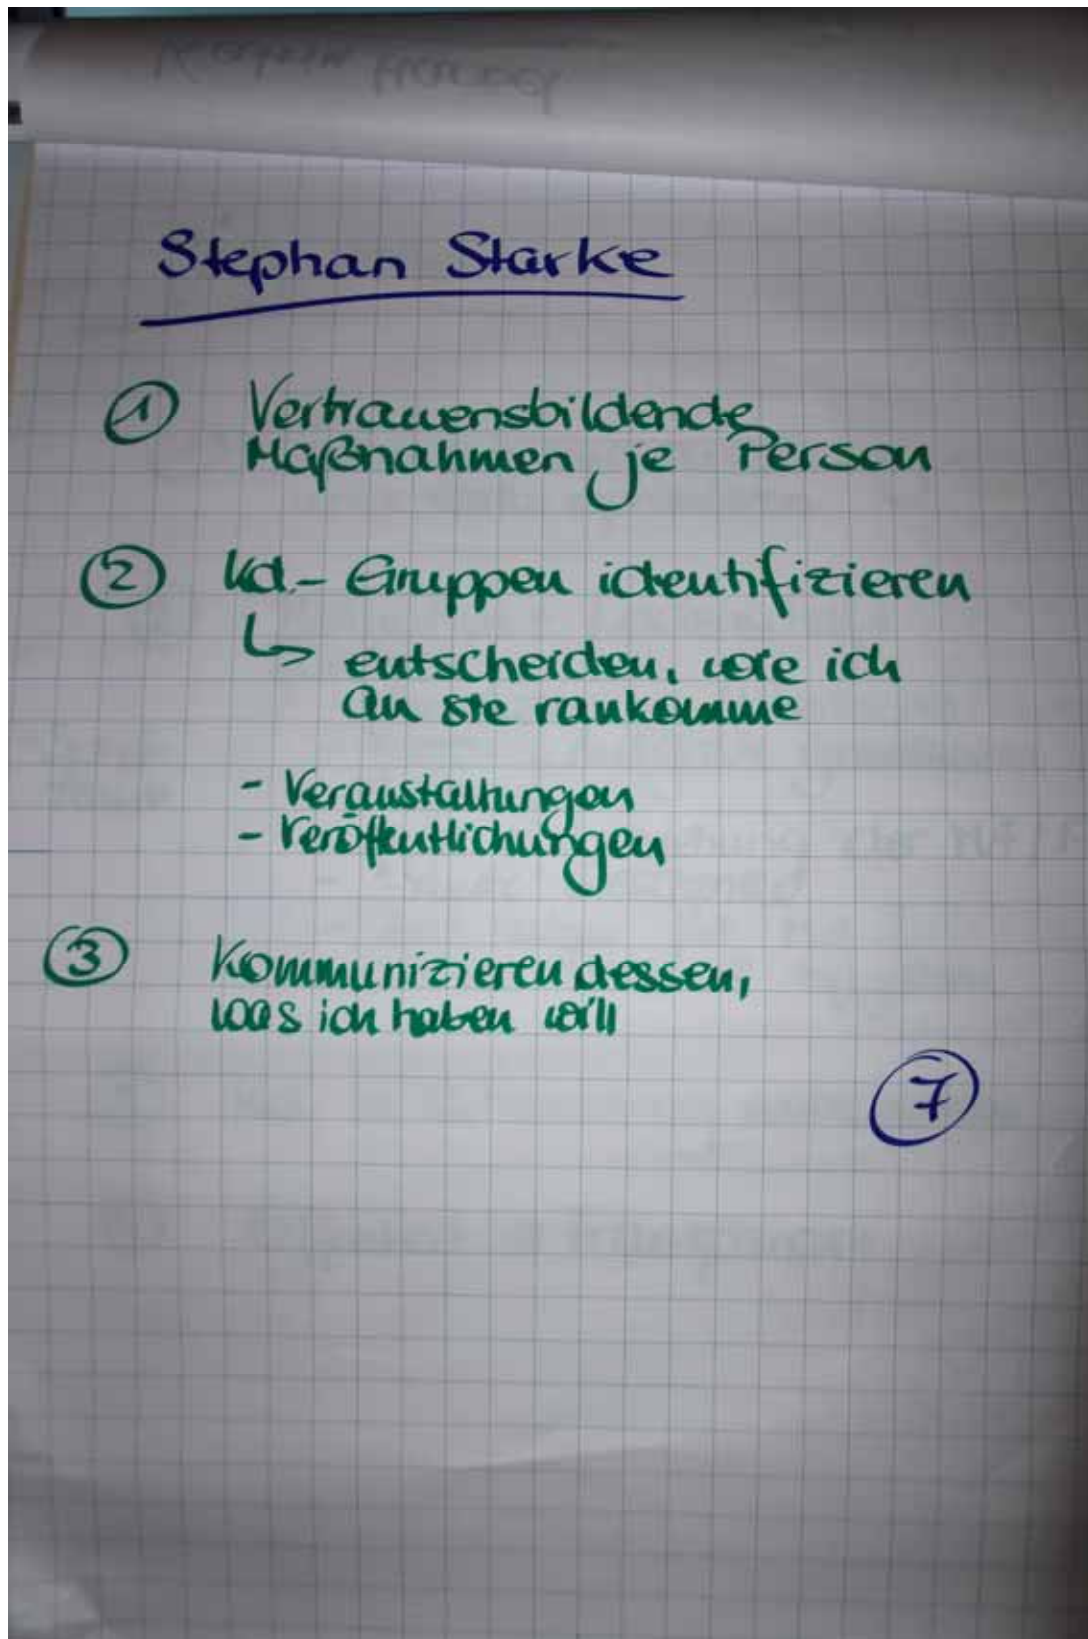 Stephan Starke
① Vertrauensbildende
Maßnahmen je Person
② Kd.- Gruppen identifizieren
↳ entscheiden, wie ich
an sie rankomme
- Veranstaltungen
- Veröffentlichungen
③ Kommunizieren dessen,
was ich haben will
⑦